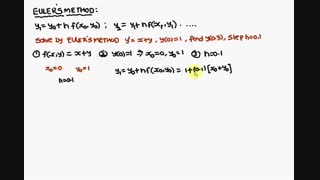 EULER'S METHOD:
y₁ = y₀ + h f(x₀, y₀) ; y₂ = y₁ + h f(x₁, y₁) . ....
Solve by EULER'S METHOD y' = x+y, y(0)=1, find y(0.3), step h=0.1
① f(x,y) = x+y ② y(0)=1 ⇒ x₀=0, y₀=1 ③ h=0.1
x₀=0 y₀=1 y₁ = y₀ + h f(x₀, y₀) = 1+(0.1)[x₀+y₀]
h=0.1